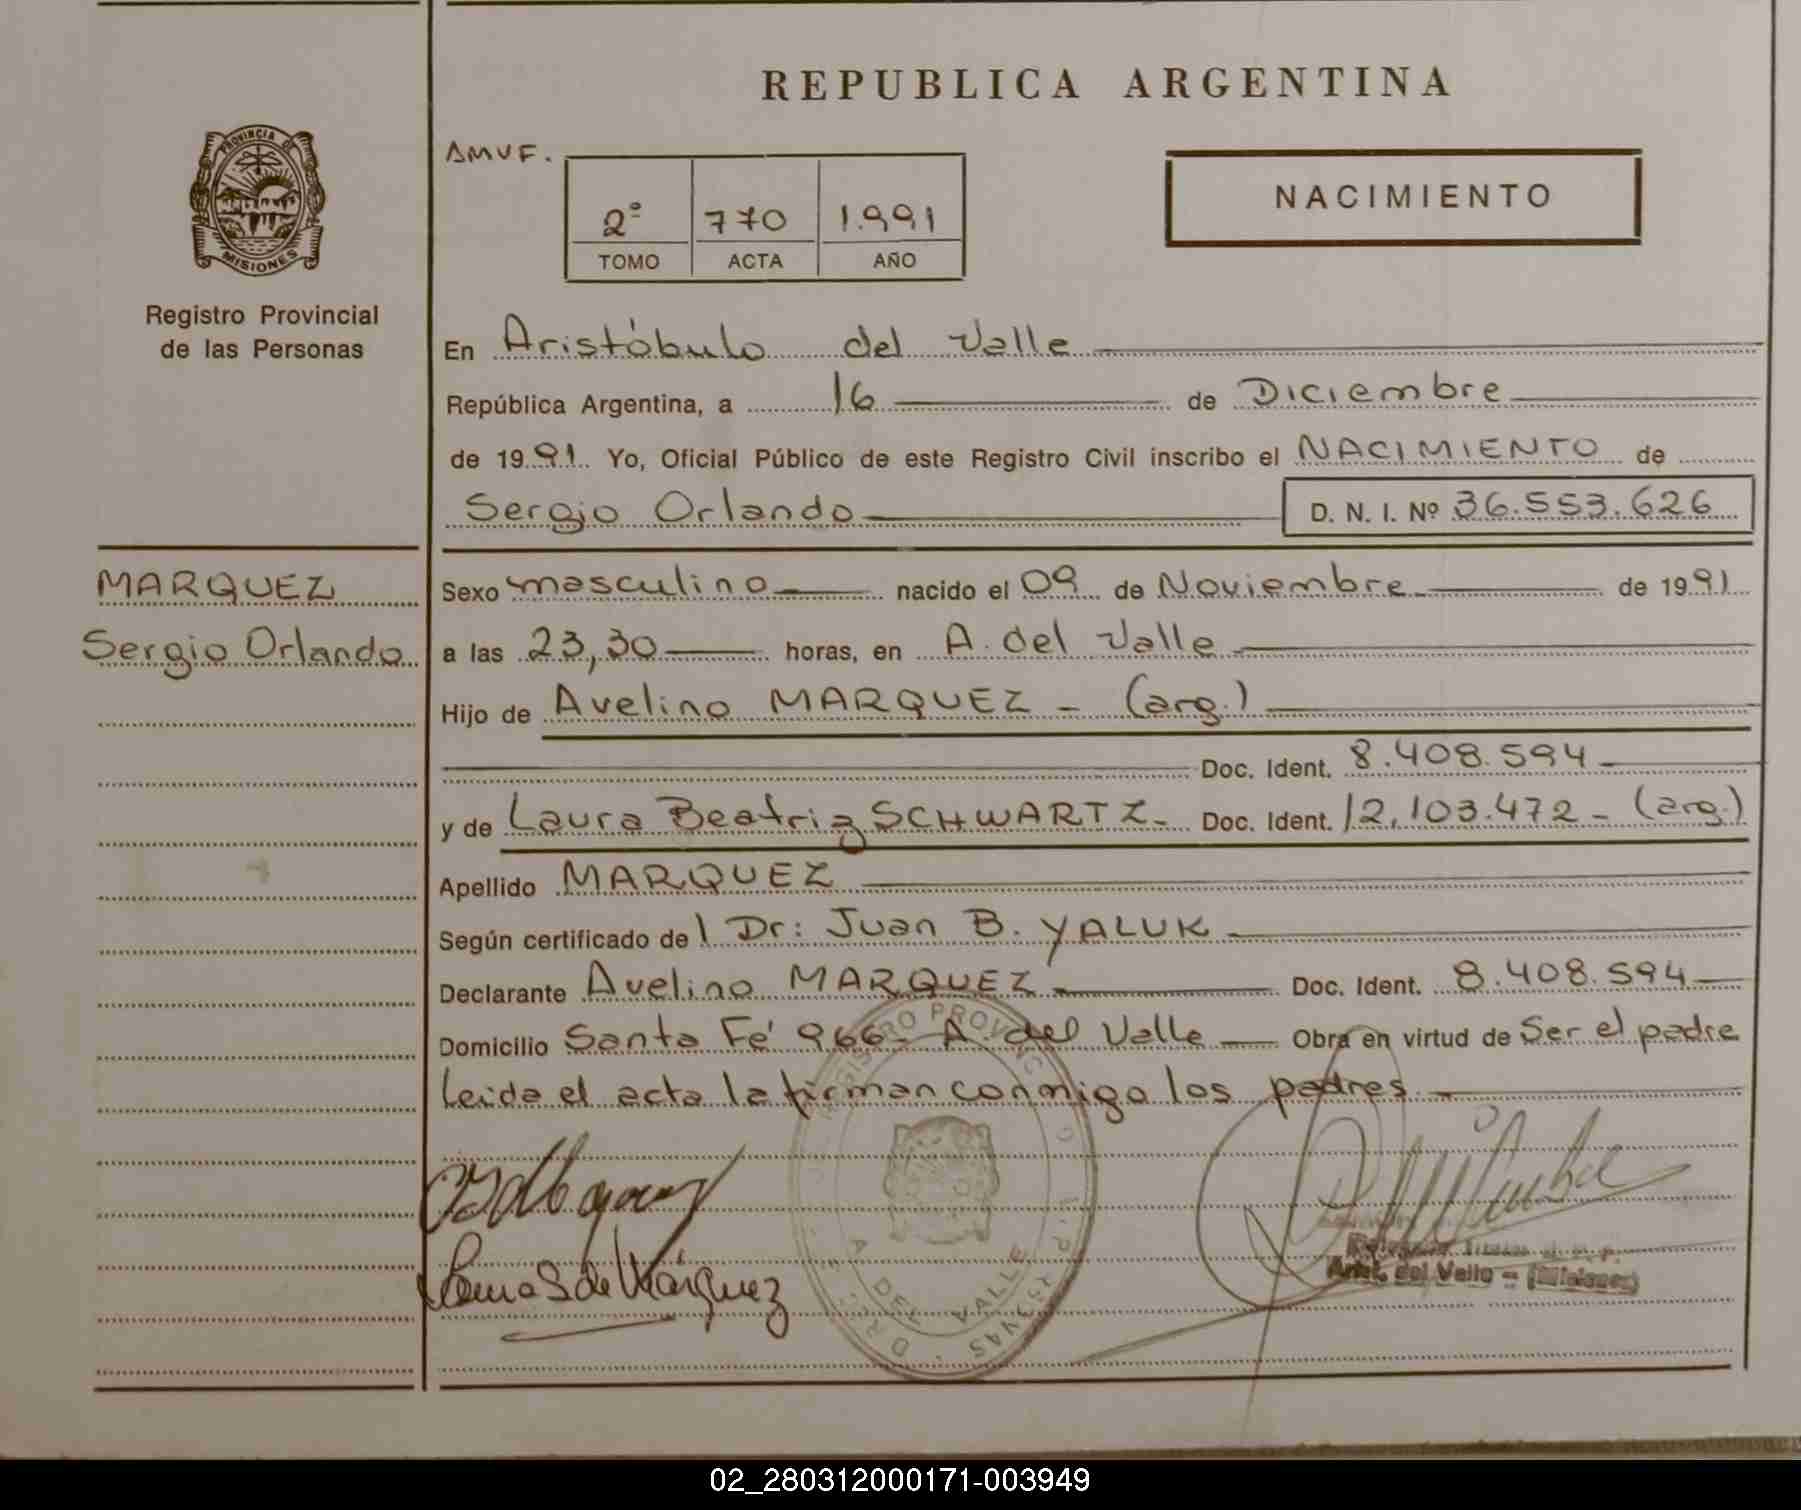 REPUBLICA ARGENTINA
AMVF.
NACIMIENTO
2º 770 1.991
TOMO ACTA AÑO
PROVINCIA DE
MISIONES
Registro Provincial
de las Personas
En Aristóbulo del Valle
República Argentina, a 16 de Diciembre
de 1991. Yo, Oficial Público de este Registro Civil inscribo el NACIMIENTO de
Sergio Orlando D. N. I. Nº 36.553.626
MARQUEZ
Sergio Orlando
Sexo masculino nacido el 09 de Noviembre de 1991
a las 23,30 horas, en A. del Valle
Hijo de Avelino MARQUEZ - (arg.)
Doc. Ident. 8.408.594
y de Laura Beatriz SCHWARTZ- Doc. Ident. 12.103.472 - (arg.)
Apellido MARQUEZ
Según certificado del Dr: Juan B. YALUK
Declarante Avelino MARQUEZ Doc. Ident. 8.408.594
Domicilio Santa Fé 966- A. del Valle Obra en virtud de Ser el padre
Leida el acta la firman conmigo los padres
Laura S de Márquez
A. DEL VALLE
Arist. del Valle - (Misiones)
02_280312000171-003949